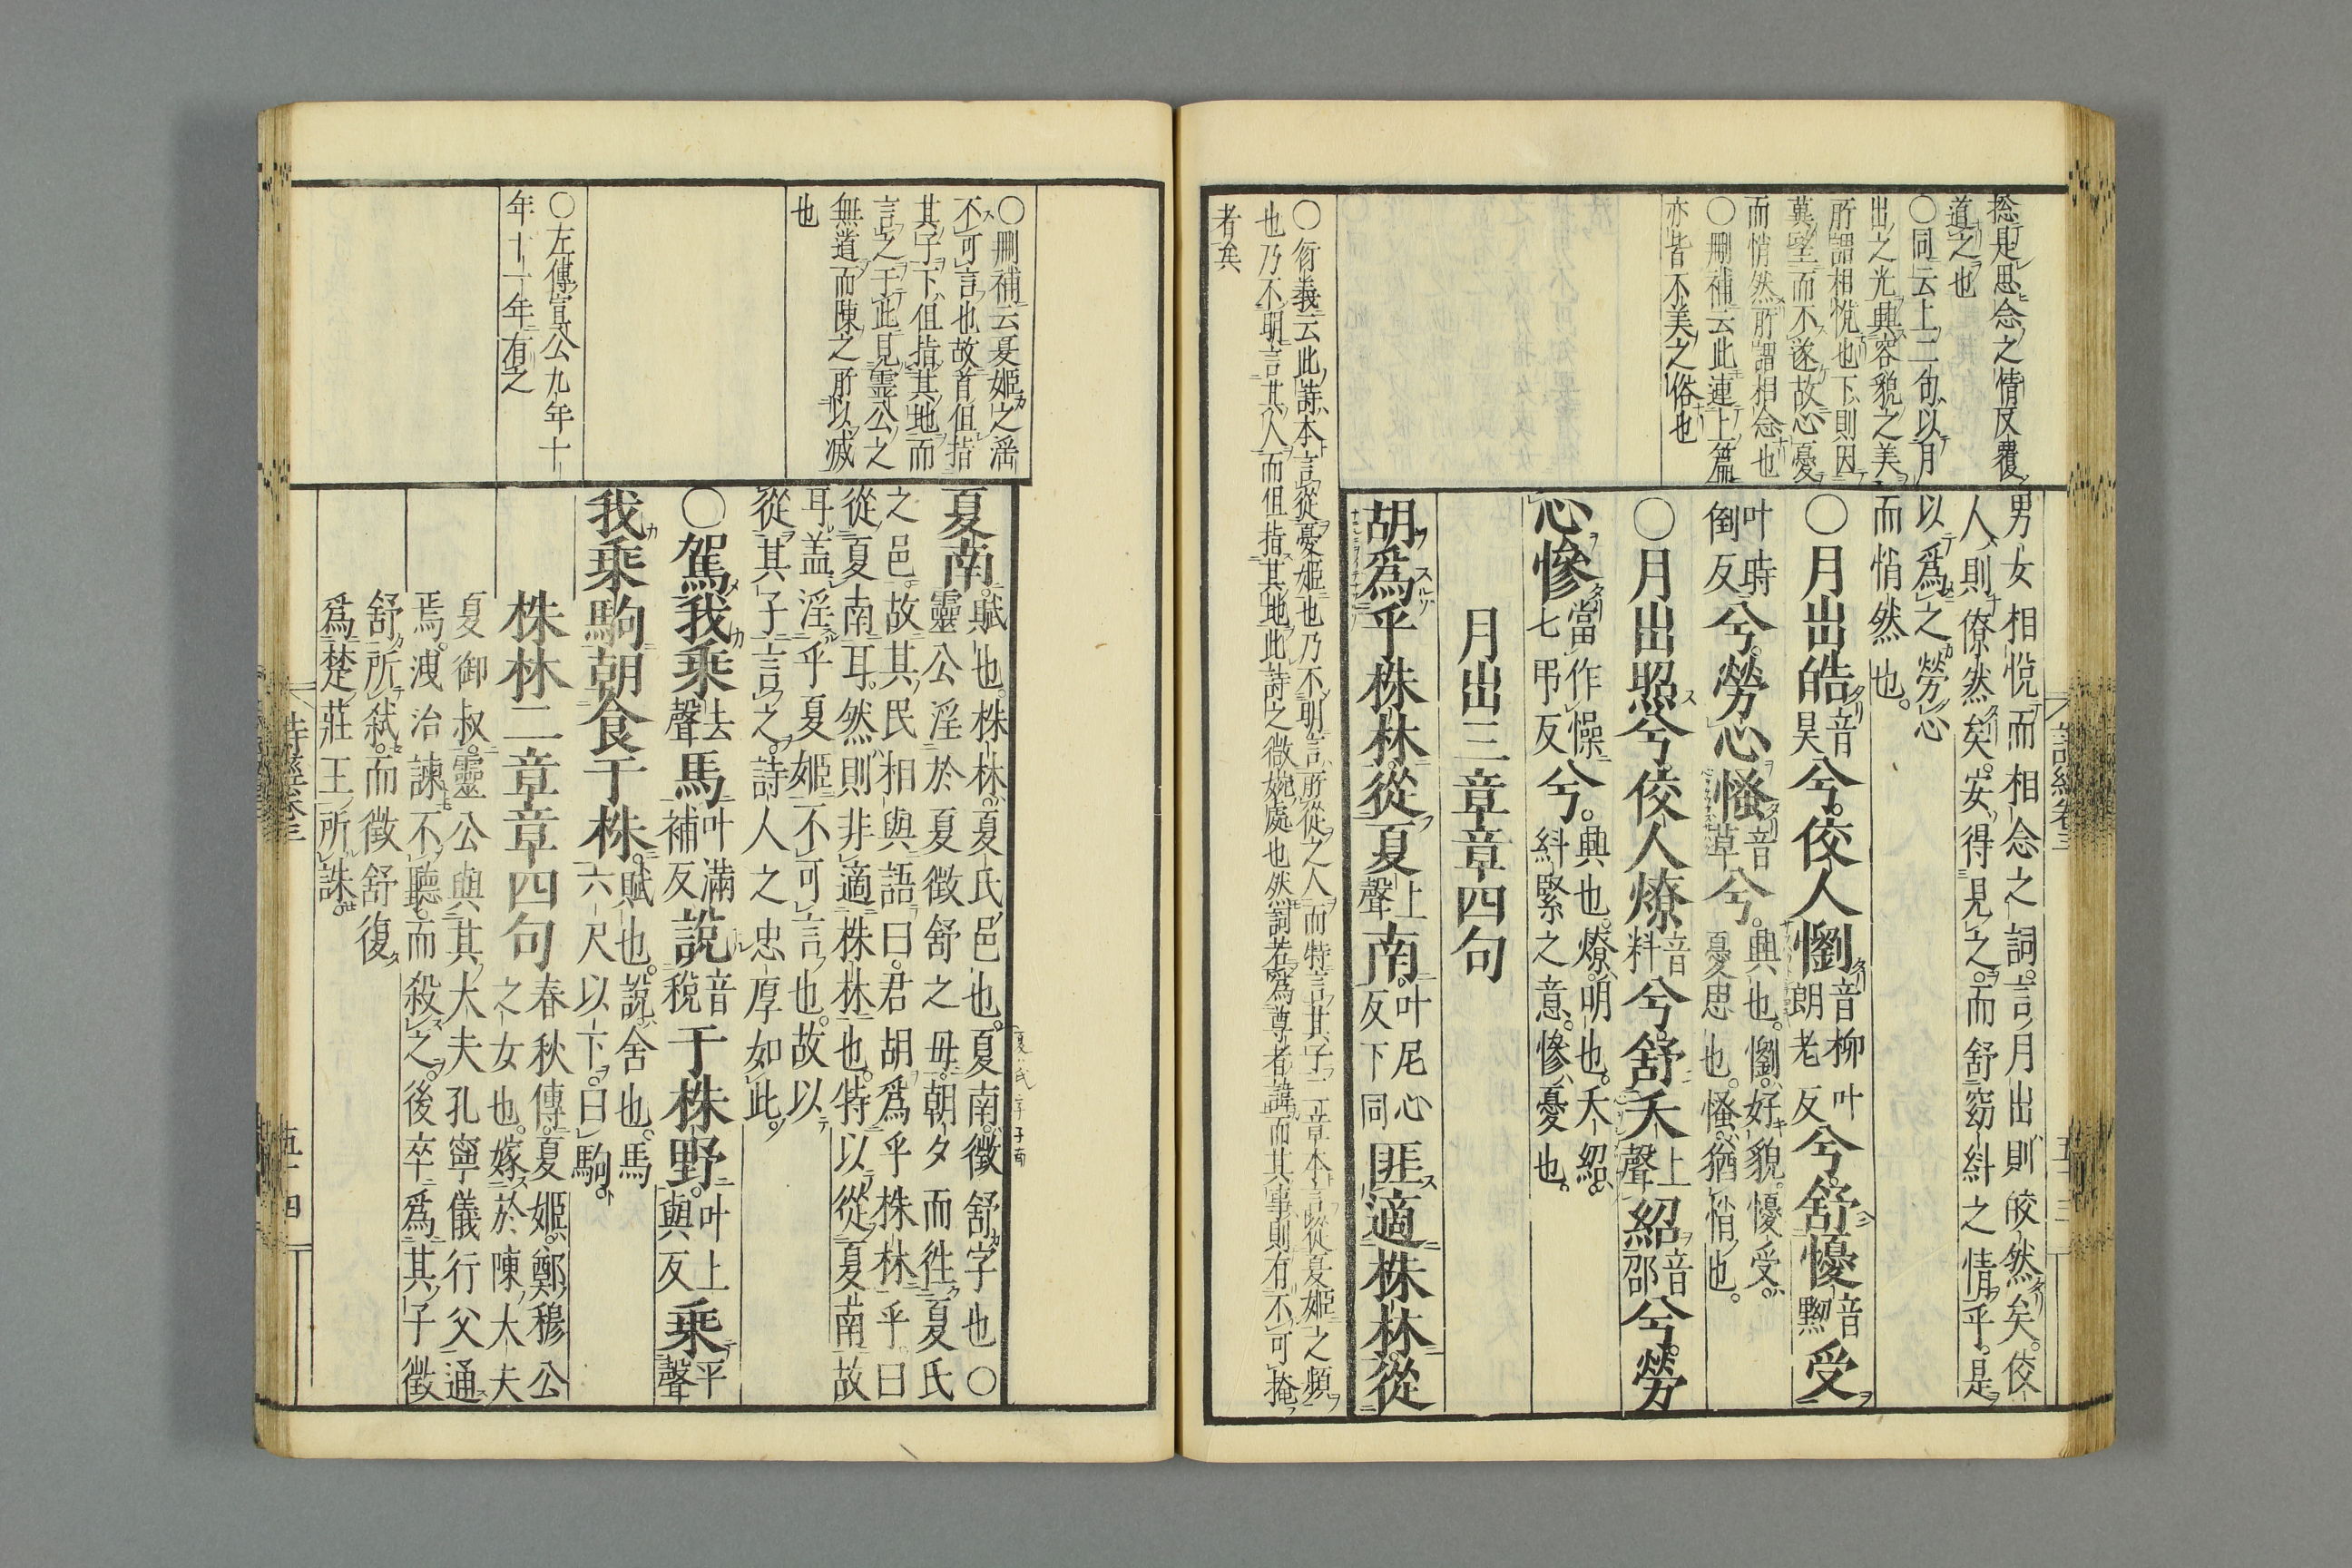 捴是思念之情反覆
道之也
○同云上二句以月
出之光興容貌之美
所謂相悅也下則因
冀望而不遂故心憂
而悄然所謂相念也
○刪補云此連上篇
亦皆不美之俗也
男女相悅而相念之詞言月出則皎然矣佼
人則僚然矣安得見之而舒窈糾之情乎是
以爲之勞心
而悄然也
○月出皓音昊兮佼人懰音柳叶朗老反兮舒懮音黝受
叶時倒反兮勞心慅音草兮興也懰好貌懮受憂思也慅猶悄也
○月出照兮佼人燎音料兮舒夭上聲紹音邵兮勞
心慘當作懆七弔反兮興也燎明也夭紹糾緊之意慘憂也
月出三章章四句
胡爲乎株林從夏上聲南叶尼心反下同匪適株林從
○衍義云此詩本言從憂姬也乃不明言所從之人而特言其子二章本言從夏姬之頻
也乃不明言其人而但指其地此詩之微婉處也然詞若爲尊者諱而其事則有不可掩
者矣
詩經卷三
五十三
○刪補云夏姬之淫
不可言也故首但指
其子下但指其地而
言之于此見靈公之
無道而陳之所以滅
也
○左傳宣公九年十
年十一年有之
夏南賦也株林夏氏邑也夏南徵舒字也○
靈公淫於夏徵舒之母朝夕而往夏氏
之邑故其民相與語曰君胡爲乎株林乎曰
從夏南耳然則非適株林也特以從夏南故
耳盖淫乎夏姬不可言也故以
從其子言之詩人之忠厚如此
○駕我乘去聲馬叶滿補反說音稅于株野叶上與反乘平聲
我乘駒朝食于株賦也說舍也馬六尺以下曰駒
株林二章章四句春秋傳夏姬鄭穆公
之女也嫁於陳大夫
夏御叔靈公與其大夫孔寧儀行父通
焉洩冶諫不聽而殺之後卒爲其子徵
舒所弒而徵舒復
爲楚莊王所誅
詩經卷三
五十四